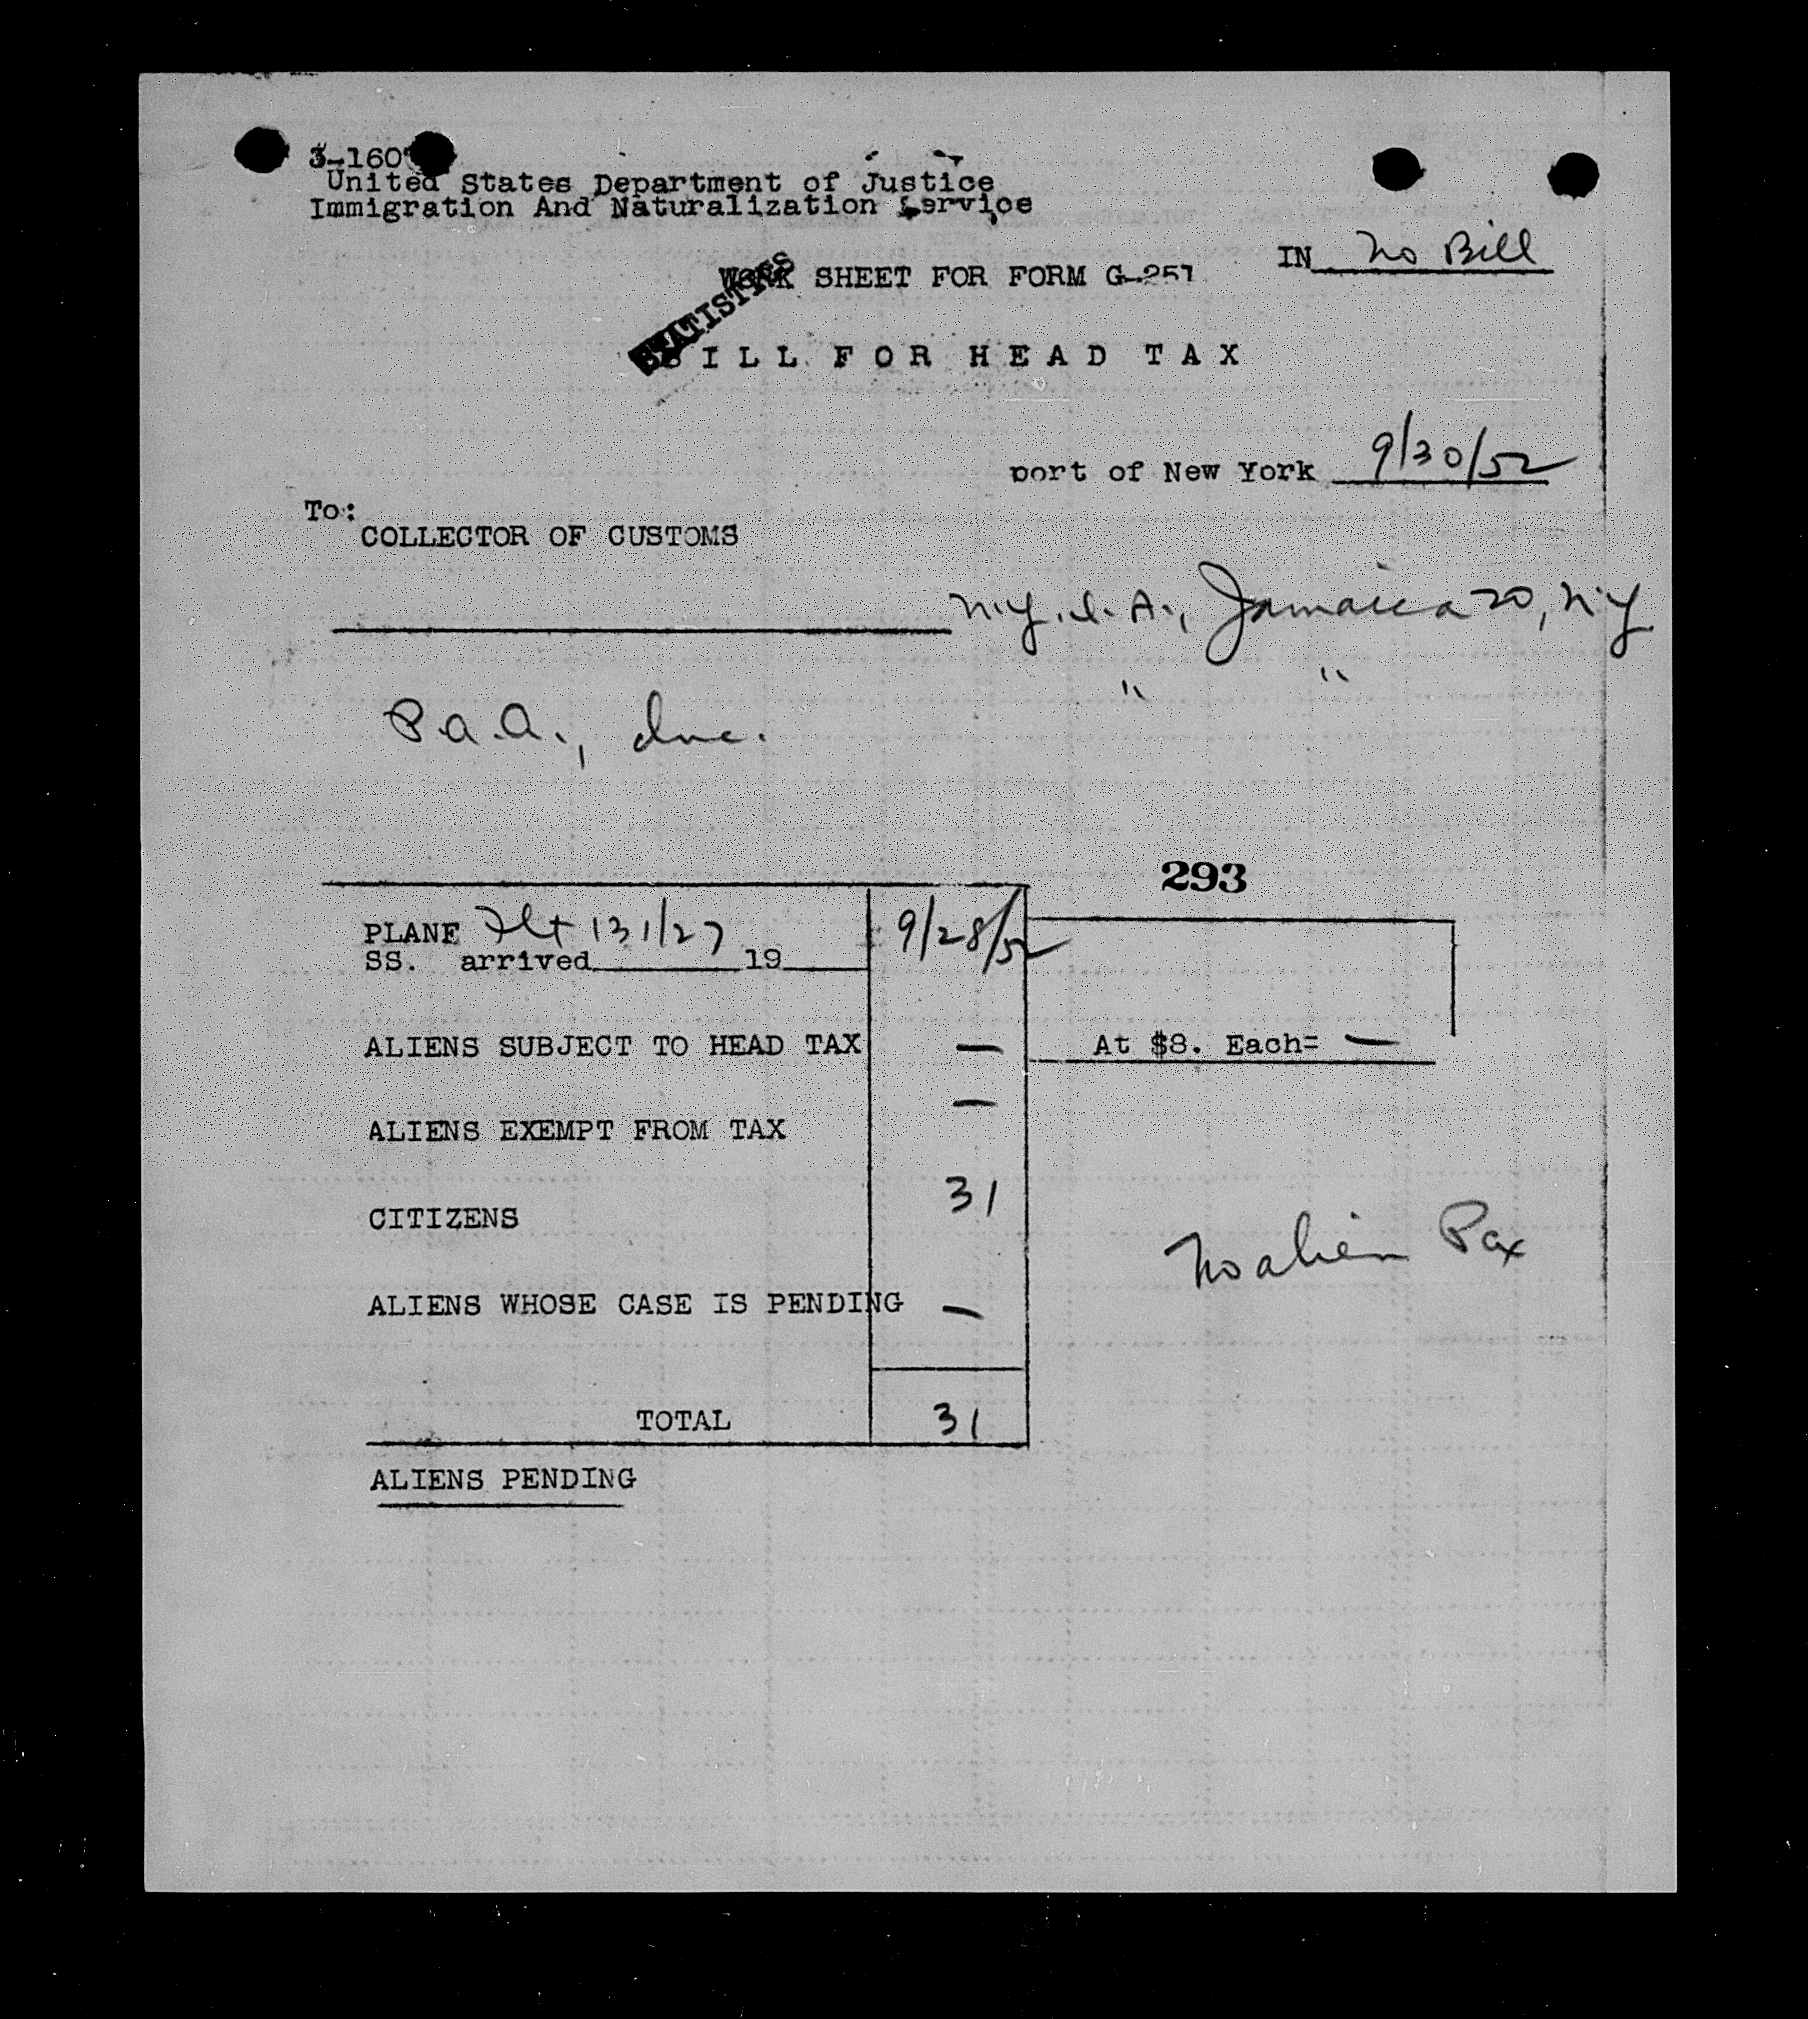 3-160
United States Department of Justice
Immigration And Naturalization Service
IN No Bill
WORK SHEET FOR FORM G-257
STATISTICS
BILL FOR HEAD TAX
port of New York 9/30/52
To:
COLLECTOR OF CUSTOMS
N.Y.I.A., Jamaica 20, N.Y
" "
P.A.A., Inc.
293
PLANE Flt 131/27 9/28/52
SS. arrived 19
ALIENS SUBJECT TO HEAD TAX — At $8. Each= —
ALIENS EXEMPT FROM TAX —
CITIZENS 31
No alien Pax
ALIENS WHOSE CASE IS PENDING —
TOTAL 31
ALIENS PENDING